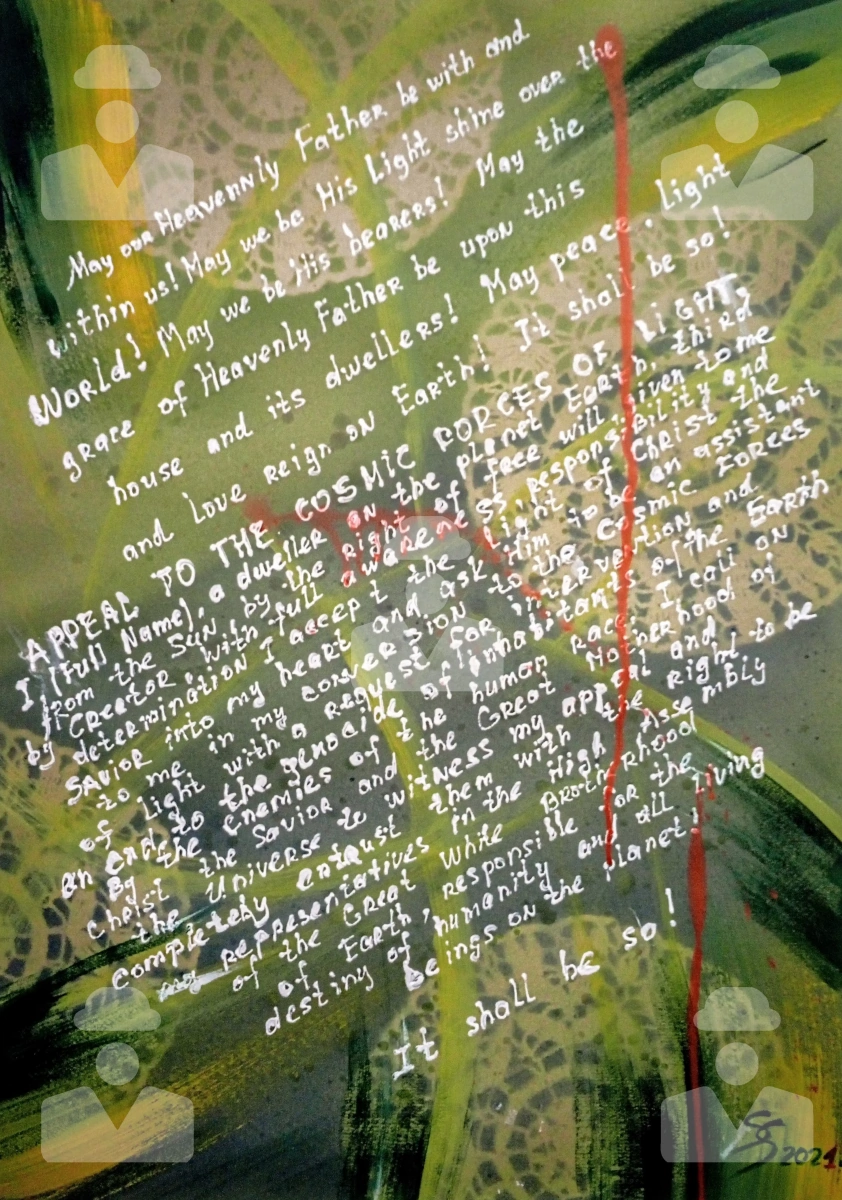 May our Heavennly Father be with and
within us! May we be His Light shine over the
World! May we be His bearers! May the
grace of Heavenly Father be upon this
house and its dwellers! May peace, light
and Love reign on Earth! It shall be so!
APPEAL TO THE COSMIC FORCES OF LIGHT:
I, (Full Name), a dweller on the planet Earth, third
from the Sun, by the right of free will given to me
by Creator, with full awareness, responsibility and
determination I accept the Light of Christ the
Savior into my heart and ask Him to be an assistant
to me in my conversion to the Cosmic Forces
of Light with a request for intervention and
an end to the genocide of inhabitants of the Earth
by the enemies of the human race. I call on
Christ the Savior and the Great Motherhood of
the Universe to witness my appeal and
completely entrust them with the right to be
representatives in the High Assembly
of the Great White Brotherhood
of Earth, responsible for the
destiny of humanity and all living
beings on the planet!
It shall be so!
2021